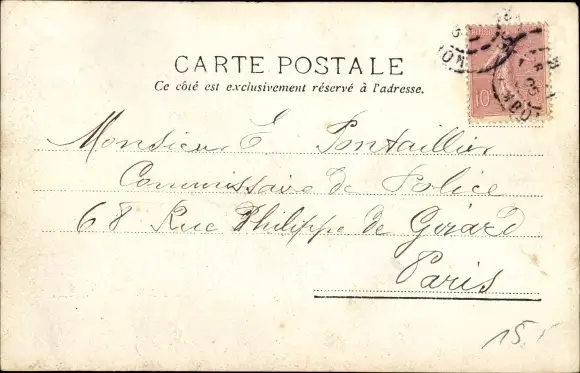 CARTE POSTALE
Ce côté est exclusivement réservé à l'adresse.
10
Monsieur E Pontaillier
Commissaire de Police
68 Rue Philippe de Girard
Paris
15.